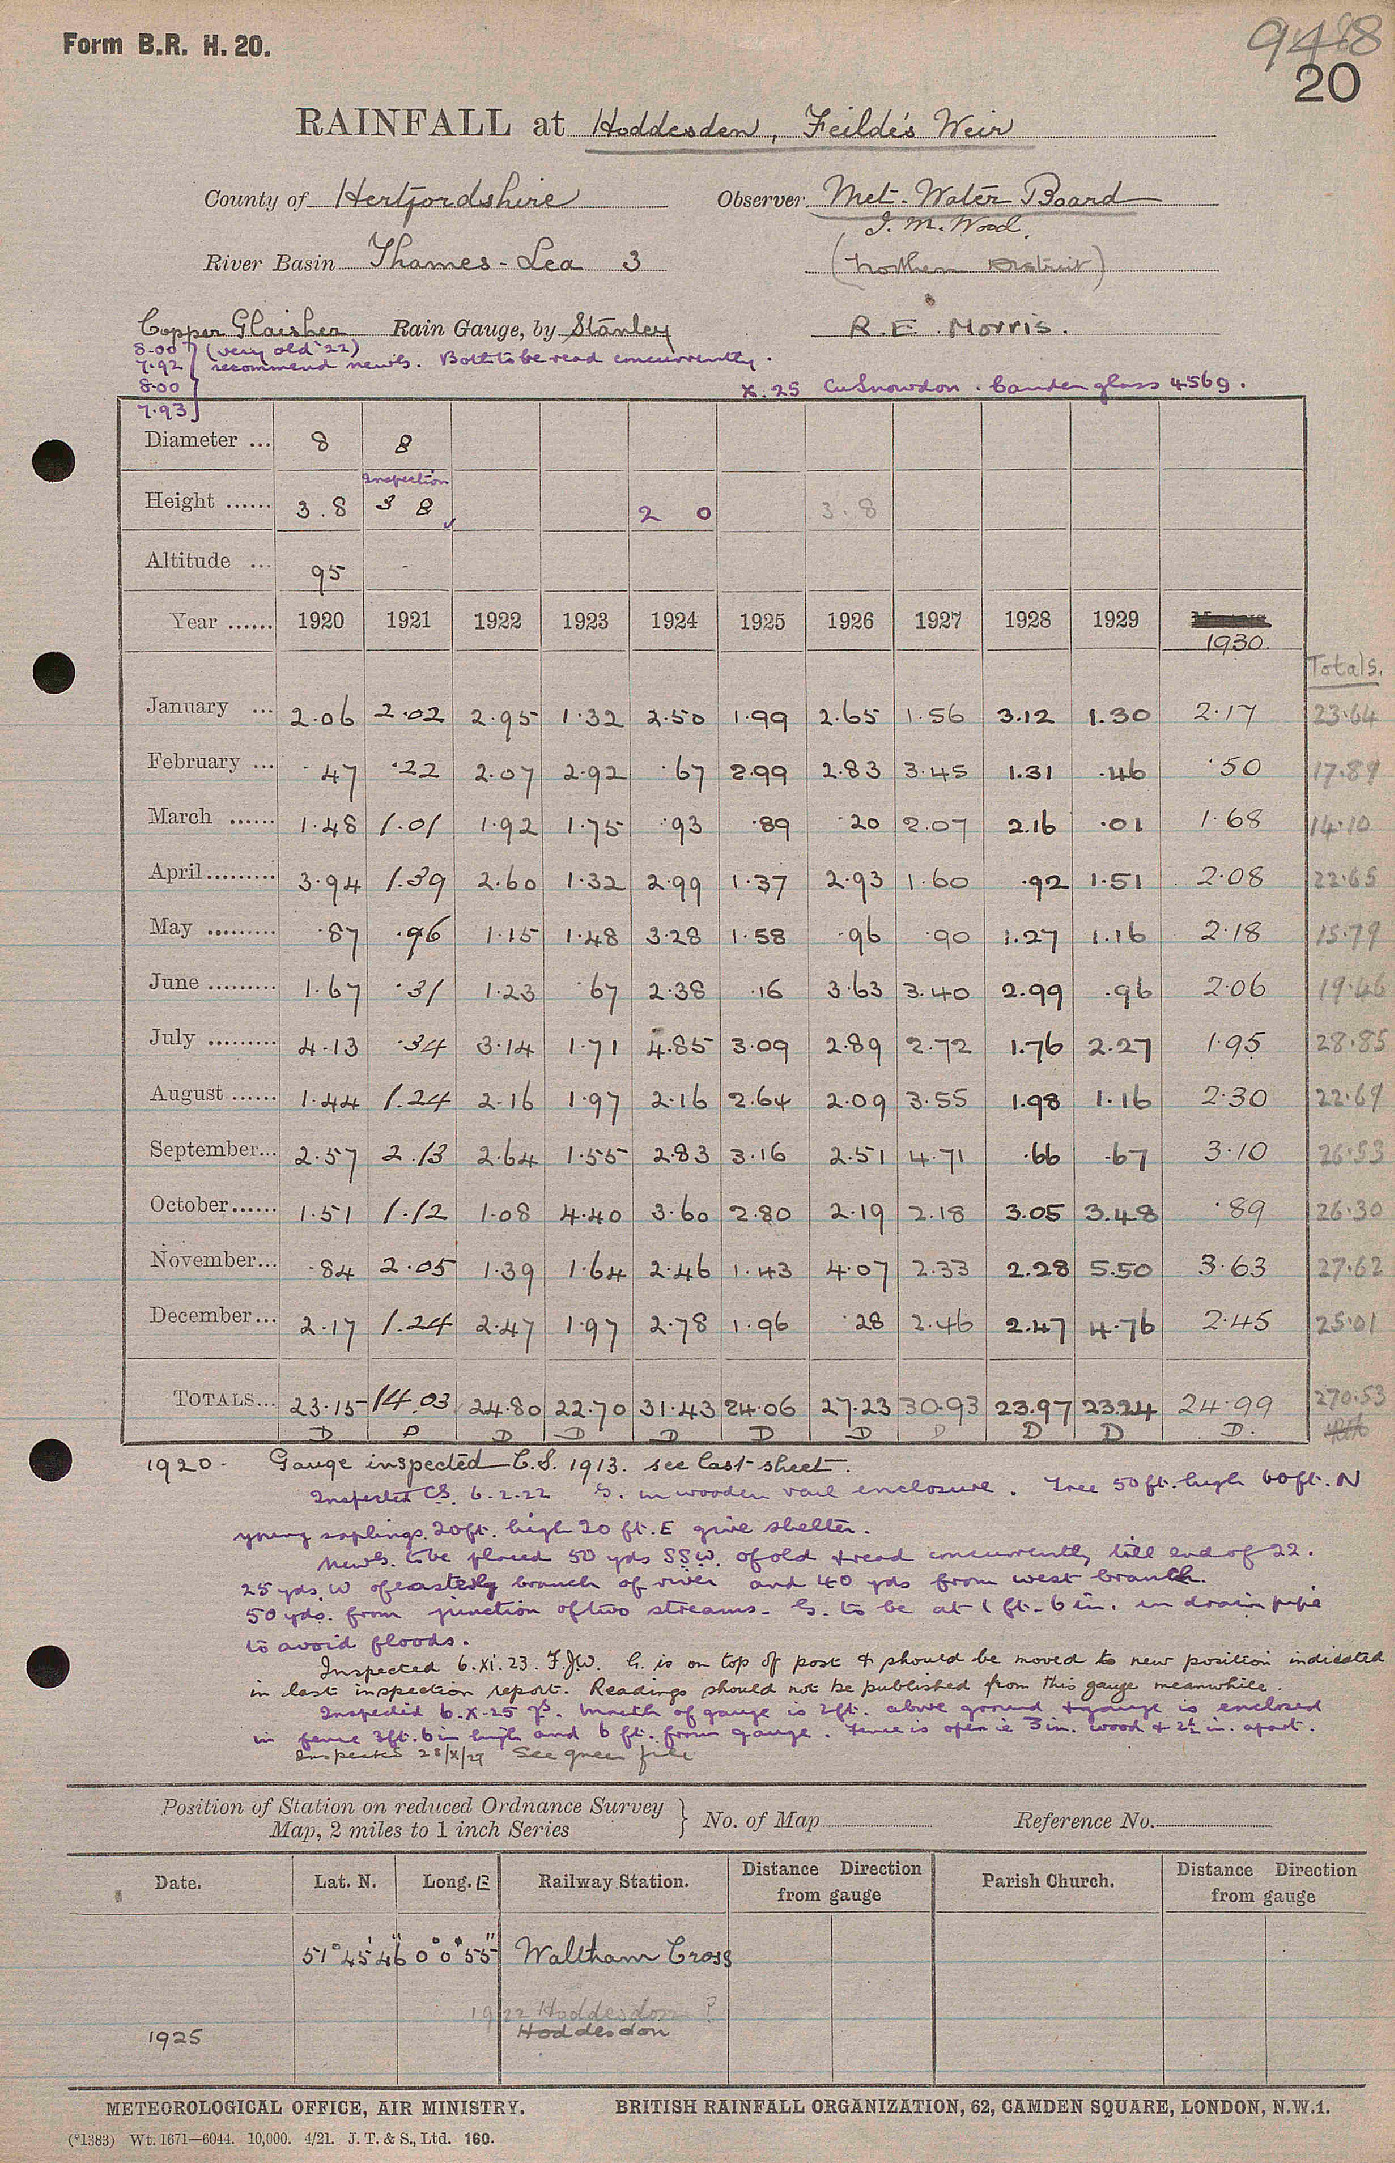 Form B.R. H. 20.
9418
20
RAINFALL at Hoddesden, Feilde's Weir
County of Hertfordshire Observer Met. Water Board
J. M. Wood.
River Basin Thames - Lea 3 (Northern District)
Copper Glaisher Rain Gauge, by Stanley R. E. Morris.
8.00 (very old '22)
7.92 recommend new G. Both to be read concurrently.
8.00
X.25 Cu Snowdon. Camden glass 4569.
7.93
Diameter ... 8 8
Inspection
Height ...... 3.8 3 8 2 0 3.8
Altitude ... 95 -
Year ...... 1920 1921 1922 1923 1924 1925 1926 1927 1928 1929 1930
Totals.
January ... 2.06 2.02 2.95 1.32 2.50 1.99 2.65 1.56 3.12 1.30 2.17 23.64
February ... .47 .22 2.07 2.92 .67 2.99 2.83 3.45 1.31 .46 .50 17.89
March ...... 1.48 1.01 1.92 1.75 .93 .89 .20 2.07 2.16 .01 1.68 14.10
April ......... 3.94 1.39 2.60 1.32 2.99 1.37 2.93 1.60 .92 1.51 2.08 22.65
May ......... .87 .96 1.15 1.48 3.28 1.58 .96 .90 1.27 1.16 2.18 15.79
June ......... 1.67 .31 1.23 .67 2.38 .16 3.63 3.40 2.99 .96 2.06 19.46
July ......... 4.13 .34 3.14 1.71 4.85 3.09 2.89 2.72 1.76 2.27 1.95 28.85
August ...... 1.44 1.24 2.16 1.97 2.16 2.64 2.09 3.55 1.98 1.16 2.30 22.69
September... 2.57 2.13 2.64 1.55 2.83 3.16 2.51 4.71 .66 .67 3.10 26.53
October...... 1.51 1.12 1.08 4.40 3.60 2.80 2.19 2.18 3.05 3.48 .89 26.30
November... .84 2.05 1.39 1.64 2.46 1.43 4.07 2.33 2.28 5.50 3.63 27.62
December... 2.17 1.24 2.47 1.97 2.78 1.96 .28 2.46 2.47 4.76 2.45 25.01
TOTALS... 23.15 14.03 24.80 22.70 31.43 24.06 27.23 30.93 23.97 23.24 24.99 270.53
D P D D D D D D D D D.
1920. Gauge inspected C.S. 1913. see last sheet.
Inspected CS. 6.2.22 G. in wooden rail enclosure. Tree 50 ft. high 60 ft. N
young saplings 20 ft. high 20 ft. E give shelter.
New G. to be placed 50 yds SSW. of old & read concurrently till end of 22.
25 yds W of easterly branch of river and 40 yds from west branch.
50 yds. from junction of two streams - G. to be at 1 ft. 6 in. in drain pipe
to avoid floods.
Inspected 6.XI.23. F.J.W. G. is on top of post & should be moved to new position indicated
in last inspection report. Readings should not be published from this gauge meanwhile.
Inspected 6.X.25 Mouth of gauge is 2 ft. above ground & gauge is enclosed
in fence 3 ft. 6 in high and 6 ft. from gauge. Fence is open i.e 3 in. wood & 2½ in. apart.
Inspected 28/X/29 See green file
Position of Station on reduced Ordnance Survey
Map, 2 miles to 1 inch Series } No. of Map Reference No.
Date. Lat. N. Long. E Railway Station. Distance Direction from gauge Parish Church. Distance Direction from gauge
51° 45' 46" 0° 0' 55" Waltham Cross
1922 Hoddesdon ?
1925 Hoddesdon
METEOROLOGICAL OFFICE, AIR MINISTRY. BRITISH RAINFALL ORGANIZATION, 62, CAMDEN SQUARE, LONDON, N.W.1.
(*1383) Wt. 1671—6044. 10,000. 4/21. J. T. & S., Ltd. 160.